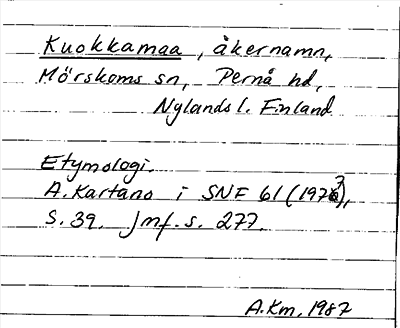 Kuokkamaa, åkernamn,
Mörskoms sn, Pernå hd,
Nylands l. Finland
Etymologi.
A. Kartano i SNF 61 (1973),
s. 39. Jmf. s. 277.
A.Km, 1987